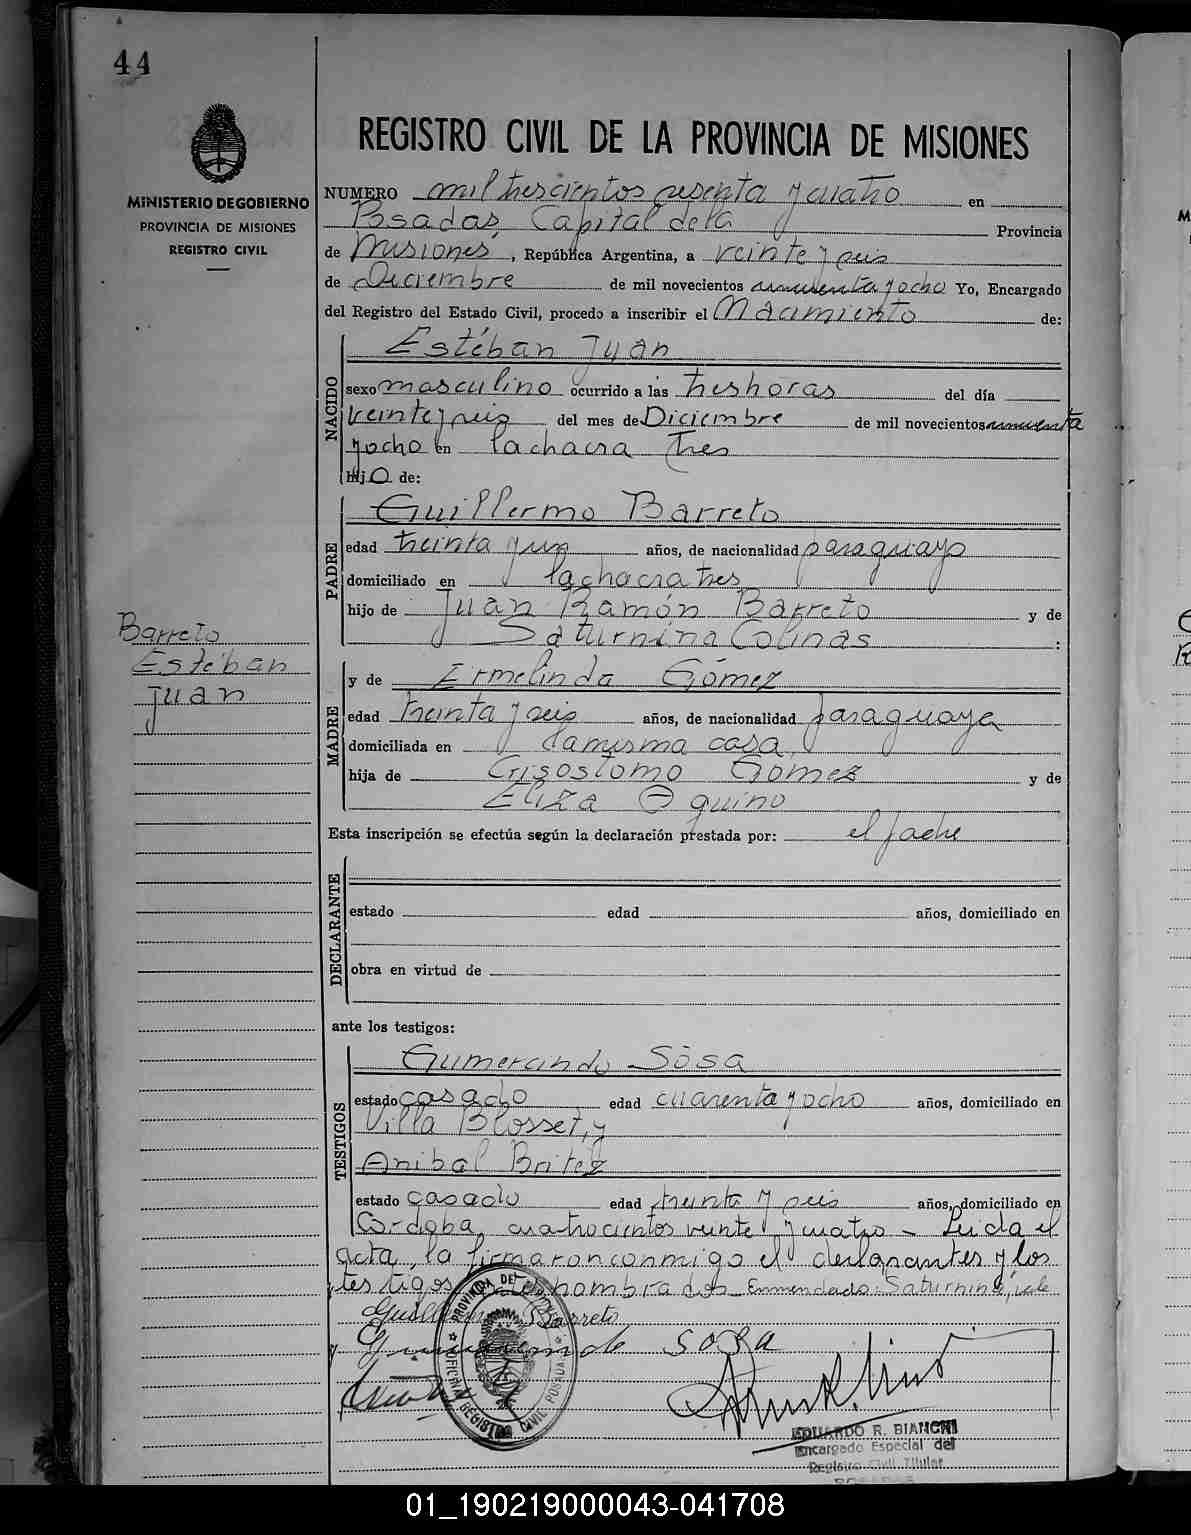 44
MINISTERIO DE GOBIERNO
PROVINCIA DE MISIONES
REGISTRO CIVIL
REGISTRO CIVIL DE LA PROVINCIA DE MISIONES
NUMERO mil trescientos sesenta y cuatro en
Posadas, Capital de la Provincia
de Misiones, República Argentina, a veinte y seis
de Diciembre de mil novecientos cincuenta y ocho Yo, Encargado
del Registro del Estado Civil, procedo a inscribir el Nacimiento de:
NACIDO
Estéban Juan
sexo masculino ocurrido a las tres horas del día
veinte y seis del mes de Diciembre de mil novecientos cincuenta
y ocho en la chacra tres
hijo de:
PADRE
Guillermo Barreto
edad treinta y un años, de nacionalidad paraguayo
domiciliado en la chacra tres
hijo de Juan Ramón Barreto y de
Saturnina Colinas :
Barreto
Estéban
Juan
MADRE
y de Ermelinda Gómez
edad treinta y seis años, de nacionalidad paraguaya
domiciliada en la misma casa
hija de Crisostomo Gómez y de
Eliza Aquino
Esta inscripción se efectúa según la declaración prestada por: el padre
DECLARANTE
estado edad años, domiciliado en
obra en virtud de
ante los testigos:
TESTIGOS
Gumercindo Sosa
estado casado edad cuarenta y ocho años, domiciliado en
Villa Blosset, y
Anibal Britez
estado casado edad treinta y seis años, domiciliado en
Córdoba, cuatrocientos veinte y cuatro - Leida el
acta, la firmaron conmigo el declarantes y los
testigos nombrados - Enmendado: Saturnina, vale
Guillermo Barreto
Sosa
PROVINCIA DE MISIONES
OFICINA REGISTRO CIVIL POSADAS
EDUARDO R. BIANCHI
Encargado Especial del
Registro Civil Titular
POSADAS
01_190219000043-041708